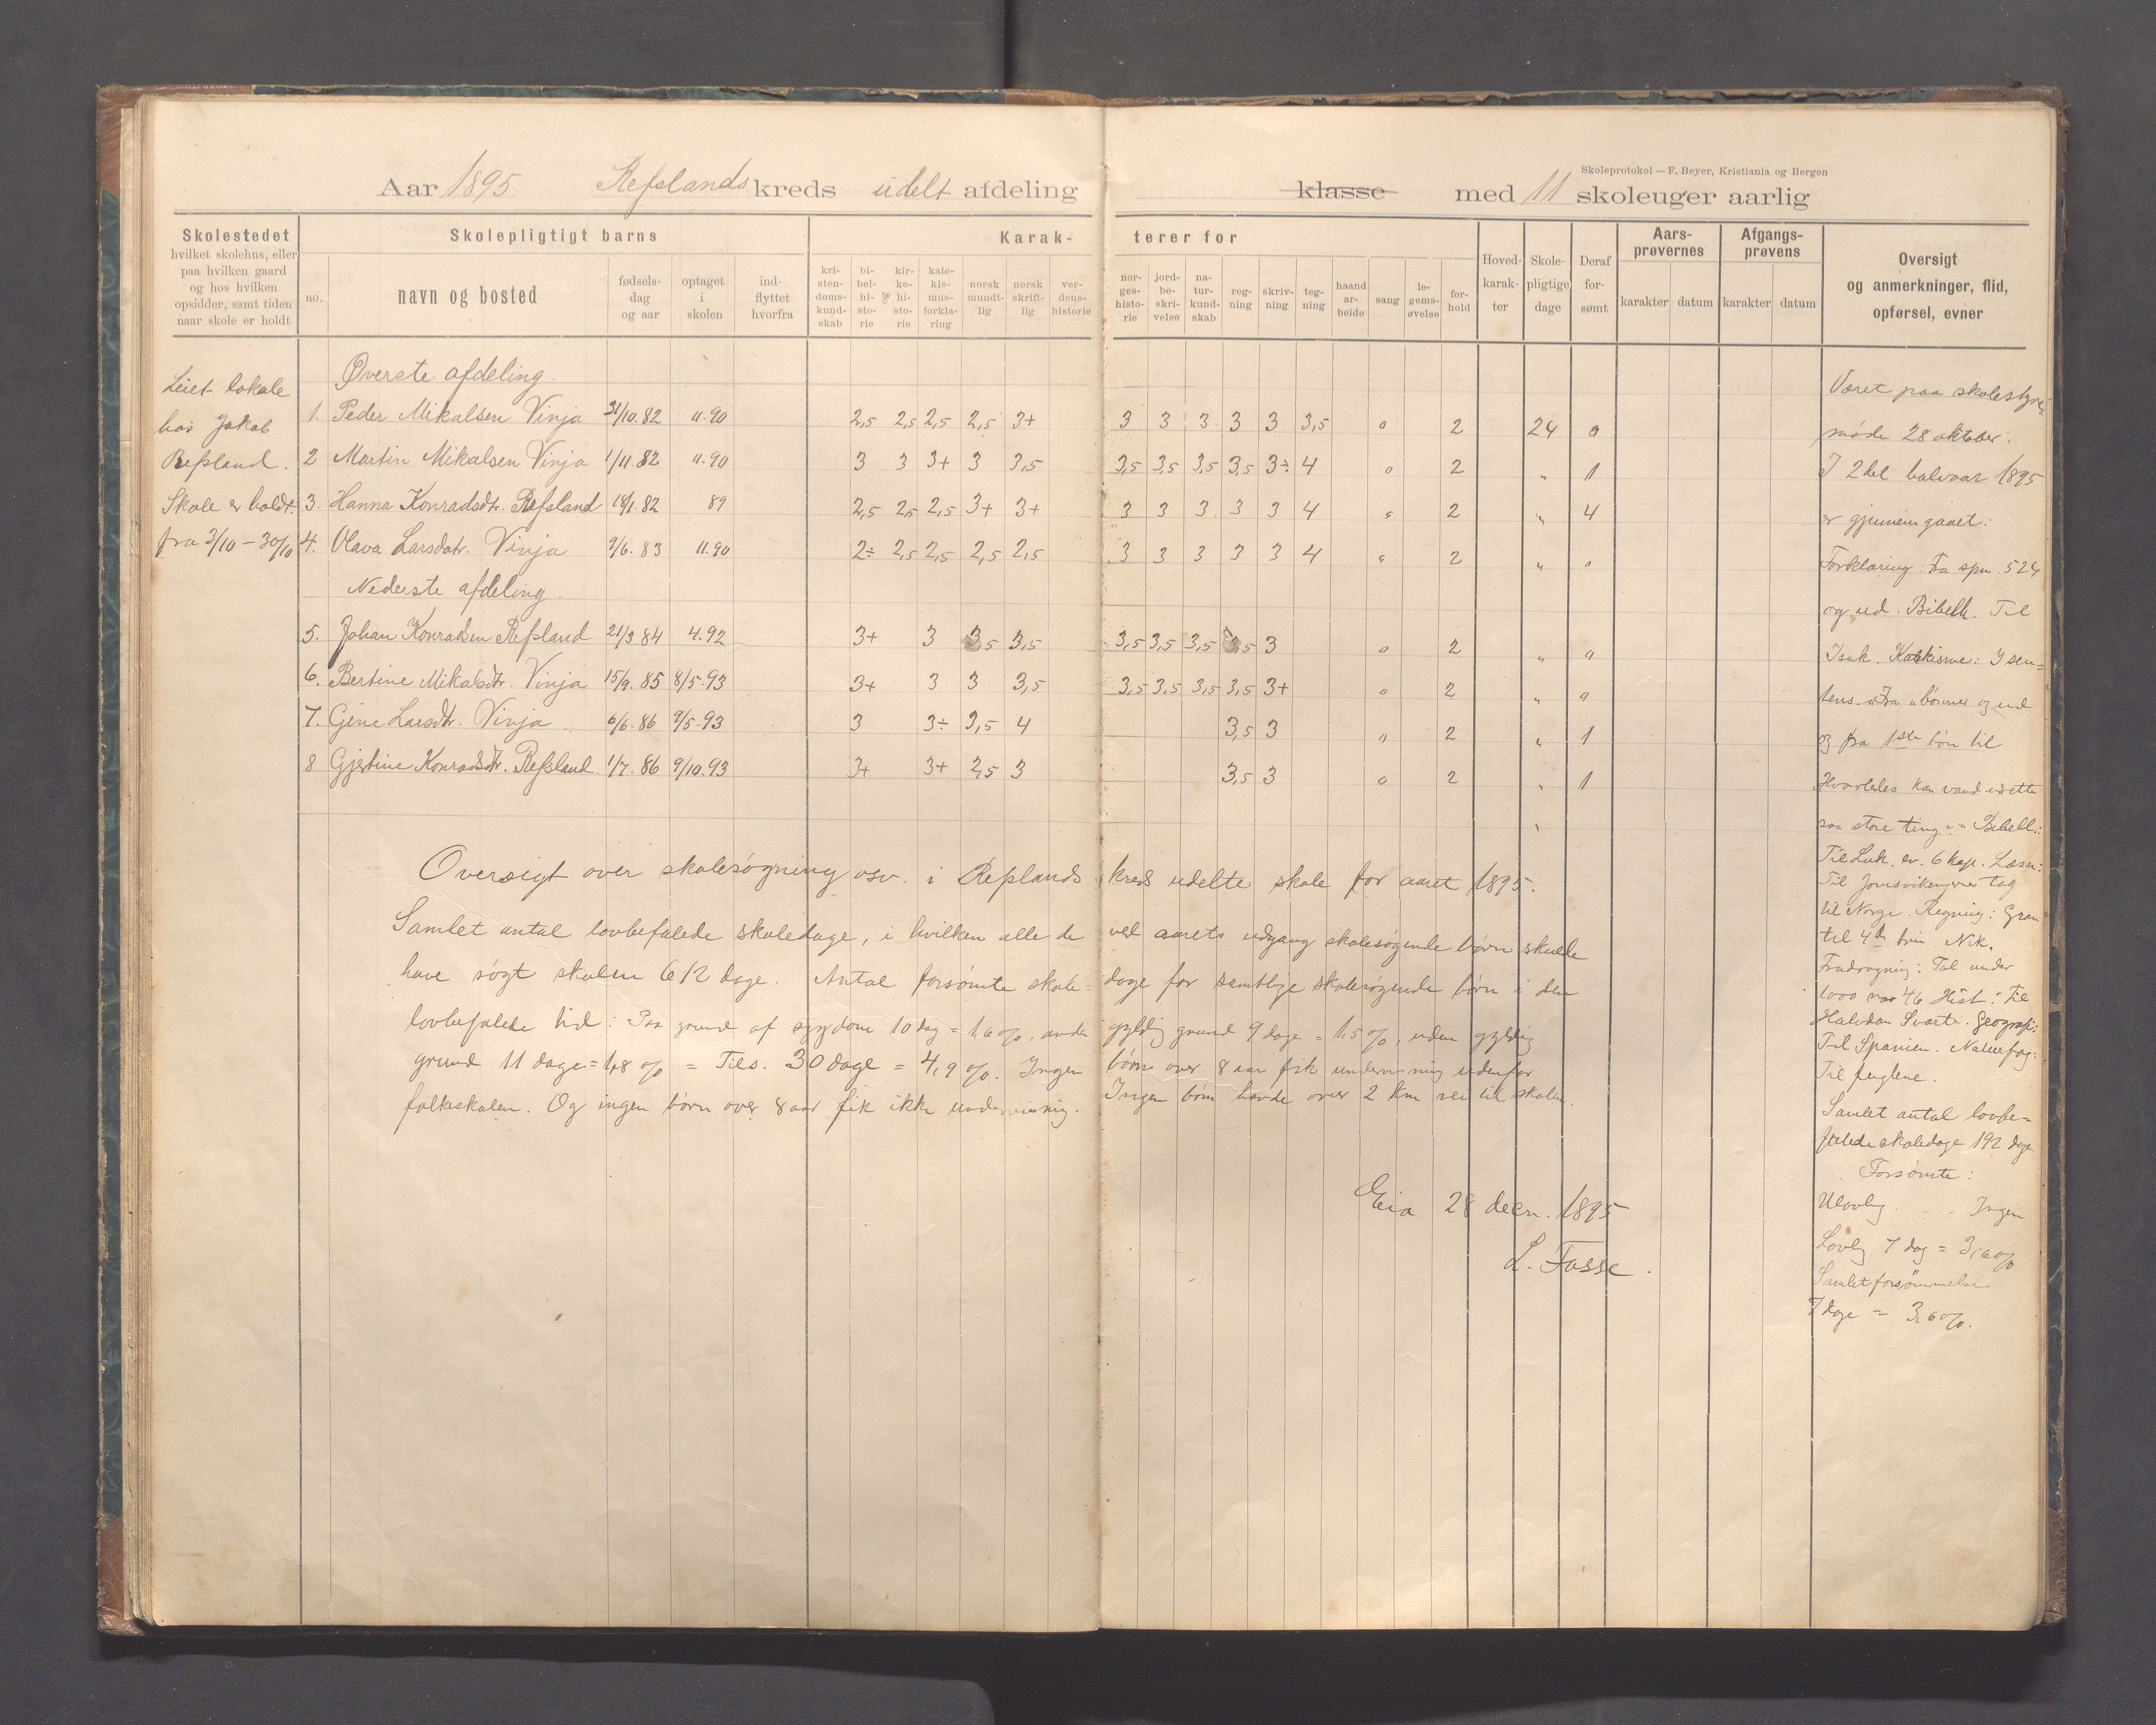 Skoleprotokol — F. Beyer, Kristiania og Bergen
Aar 1895 Refslands kreds udelt afdeling klasse med 11 skoleuger aarlig
Skolestedet
hvilket skolehus, eller
paa hvilken gaard
og hos hvilken
opsidder, samt tiden
naar skole er holdt
Skolepligtigt barns
no.
navn og bosted
fødsels-
dag
og aar
optaget
i
skolen
ind-
flyttet
hvorfra
Karak-
terer for
kri-
sten-
doms-
kund-
skab
bi-
bel-
hi-
sto-
rie
kir-
ke-
hi-
sto-
rie
kate-
kis-
mus-
forkla-
ring
norsk
mundt-
lig
norsk
skrift-
lig
ver-
dens-
historie
nor-
ges-
histo-
rie
jord-
be-
skri-
velse
na-
tur-
kund-
skab
reg-
ning
skriv-
ning
teg-
ning
haand
ar-
beide
sang
le-
gems-
øvelse
for-
hold
Hoved-
karak-
ter
Skole-
pligtige
dage
Deraf
for-
sømt
Aars-
prøvernes
karakter datum
Afgangs-
prøvens
karakter datum
Oversigt
og anmerkninger, flid,
opførsel, evner
Leiet lokale
hos Jakob
Refsland.
Skole er holdt
fra 3/10 – 30/10
Øverste afdeling.
1. Peder Mikalsen Vinja 31/10. 82 11.90 2,5 2,5 2,5 2,5 3+ 3 3 3 3 3 3,5 0 2 24 0
2 Martin Mikalsen Vinja 1/11. 82 11.90 3 3 3+ 3 3,5 3,5 3,5 3,5 3,5 3÷ 4 0 2 " 1
3. Hanna Konradsdtr. Refsland 18/1. 82 89 2,5 2,5 2,5 3+ 3+ 3 3 3 3 3 4 2 " 4
4. Olava Larsdatr. Vinja 9/6. 83 11.90 2÷ 2,5 2,5 2,5 2,5 3 3 3 3 3 4 2 " "
Nederste afdeling.
5. Johan Konradsen Refsland 21/3. 84 4.92 3+ 3 3,5 3,5 3,5 3,5 3,5 3,5 3 0 2 " 0
6. Bertine Mikalsdtr. Vinja 15/9. 85 8/5.93 3+ 3 3 3,5 3,5 3,5 3,5 3,5 3+ 0 2 " 0
7. Gine Larsdtr. Vinja 6/6. 86 9/5.93 3 3÷ 3,5 4 3,5 3 0 2 " 1
8 Gjertine Konradsdtr. Refsland 1/7. 86 9/10.93 3+ 3+ 2,5 3 3,5 3 0 2 " 1
Oversigt over skolesøgning osv. i Refslands kreds udelte skole for aaret 1895.
Samlet antal lovbefalede skoledage, i hvilken alle de ved aarets udgang skolesøgende børn skulde
have søgt skolen 612 dage. Antal forsømte skole= dage for samtlige skolesøgende børn i den
lovbefalede tid: Paa grund af sygdom 10 dag = 1,6 %, anden gyldig grund 9 dage = 1,5 %, uden gyldig
grund 11 dage = 1,8 % = Tils. 30 dage = 4,9 %. Ingen børn over 8 aar fik undervisning udenfor
folkeskolen. Og ingen børn over 8 aar fik ikke undervisning. Ingen børn havde over 2 km vei til skolen.
Eia 28 decn. 1895
L. Fosse.
Været paa skolestyre
møde 28 oktober.
I 2det halvaar 1895
er gjennemgaaet:
Forklaring: Fra spm. 524
og ud. Bibelh. Til
Isak. Katkisme:
og fra 1ste bøn til
Hvorledes kan vand udrette
saa store ting Bibelh:
Til Luk. ev. 6 kap. Læsn:
Til Jomsvikingernes tog
til Norge. Regning:
til 4de trin Nik.
Fradragning: Tal under
1000 Hist: Til
Halvdan Svarte. Geografi:
Til Spanien. Naturfag:
Til fuglene.
Samlet antal lovbe=
falede skoledage 192 dage
Forsømte:
Ulovlig. Ingen
Lovlig 7 dag = 3,6 %
Samlet forsømmelse
7 dage = 3,6 %.